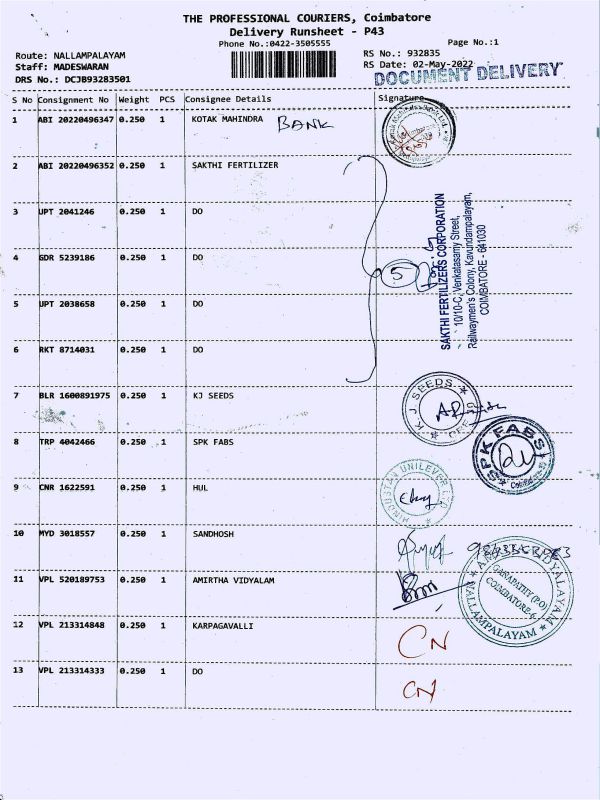 THE PROFESSIONAL COURIERS, Coimbatore
Delivery Runsheet - P43
Phone No.:0422-3505555
Page No.:1
Route: NALLAMPALAYAM
RS No.: 932835
Staff: MADESWARAN
RS Date: 02-May-2022
DRS No.: DCJB93283501
DOCUMENT DELIVERY
S No Consignment No Weight PCS Consignee Details Signature
1 ABI 20220496347 0.250 1 KOTAK MAHINDRA BANK
2 ABI 20220496352 0.250 1 SAKTHI FERTILIZER
3 UPT 2041246 0.250 1 DO
4 GDR 5239186 0.250 1 DO
5
SAKTHI FERTILIZERS CORPORATION
10/10-C, Venkatasamy Street,
Railwaymen's Colony, Kavundampalayam,
COIMBATORE - 641030
5 UPT 2038658 0.250 1 DO
6 RKT 8714031 0.250 1 DO
7 BLR 1600891975 0.250 1 KJ SEEDS
K J SEEDS
8 TRP 4042466 0.250 1 SPK FABS
SPK FABS
9 CNR 1622591 0.250 1 HUL
HINDUSTAN UNILEVER LTD
10 MYD 3018557 0.250 1 SANDHOSH
11 VPL 520189753 0.250 1 AMIRTHA VIDYALAM
GANAPATHY (P.O)
COIMBATORE-6
NALLAMPALAYAM
12 VPL 213314848 0.250 1 KARPAGAVALLI CN
13 VPL 213314333 0.250 1 DO CN